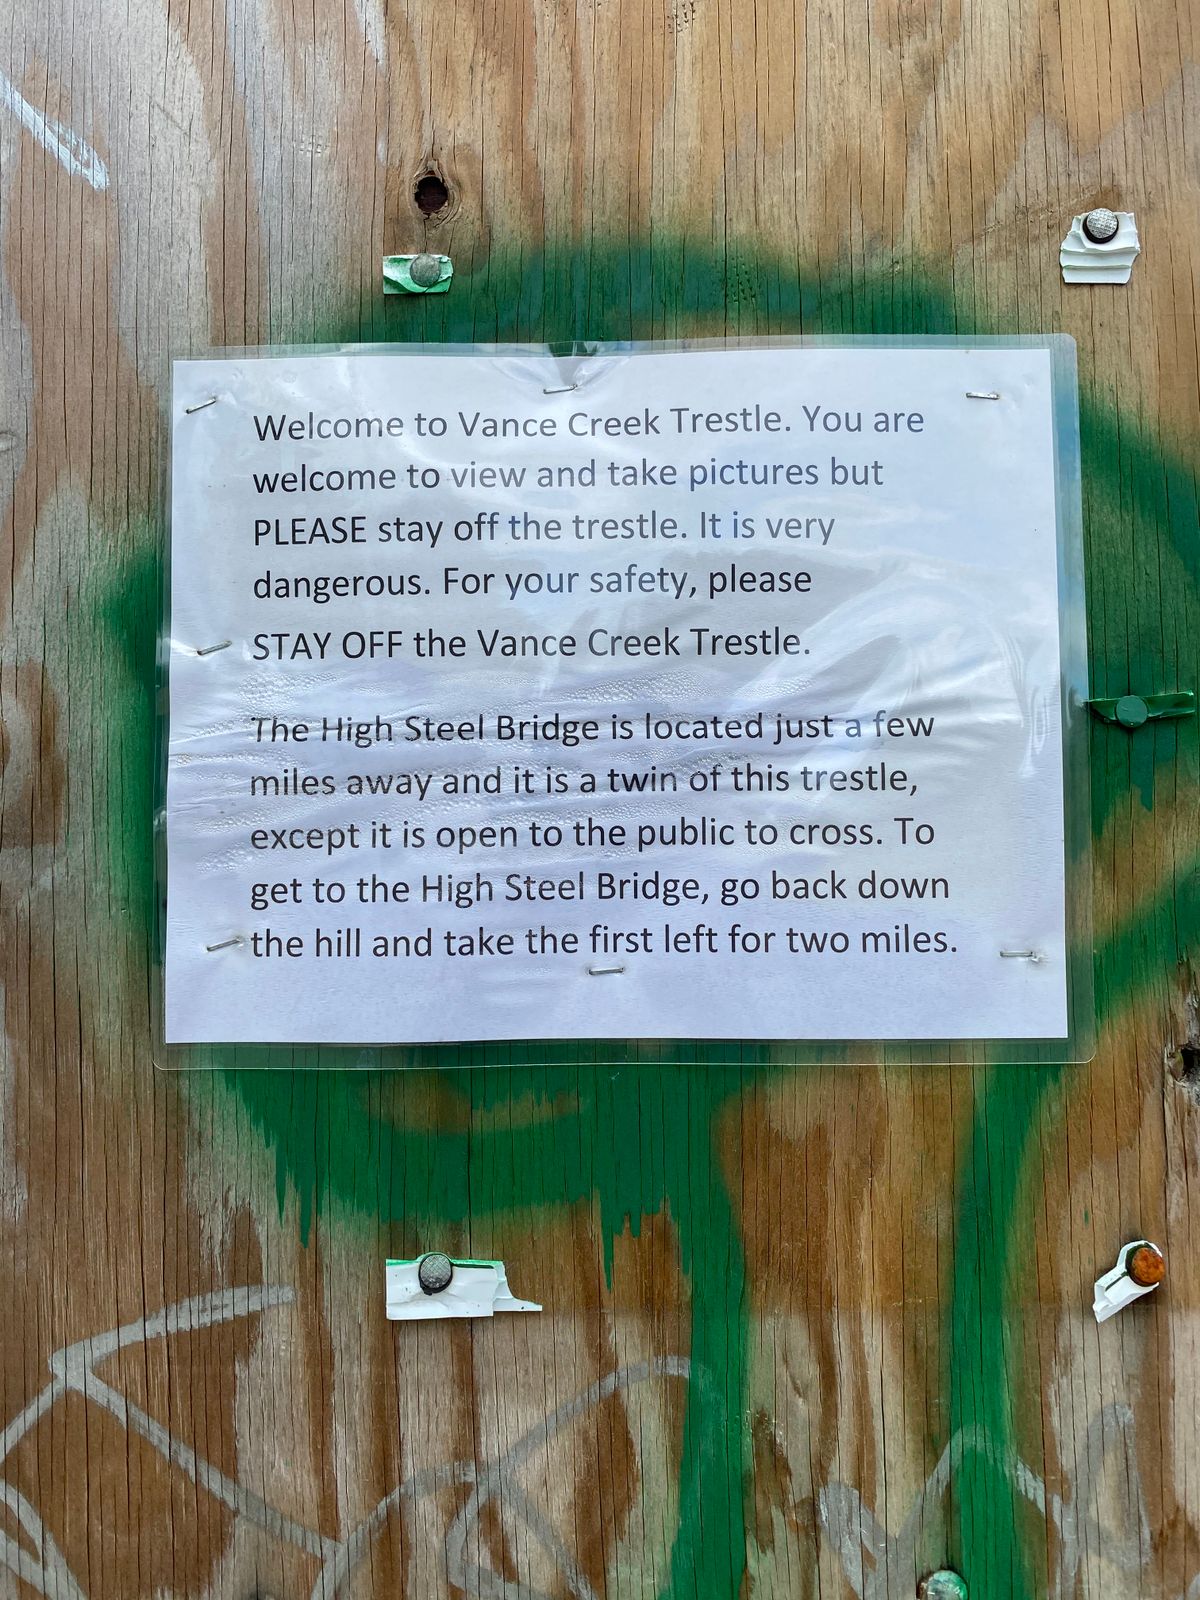 Welcome to Vance Creek Trestle. You are
welcome to view and take pictures but
PLEASE stay off the trestle. It is very
dangerous. For your safety, please
STAY OFF the Vance Creek Trestle.
The High Steel Bridge is located just a few
miles away and it is a twin of this trestle,
except it is open to the public to cross. To
get to the High Steel Bridge, go back down
the hill and take the first left for two miles.